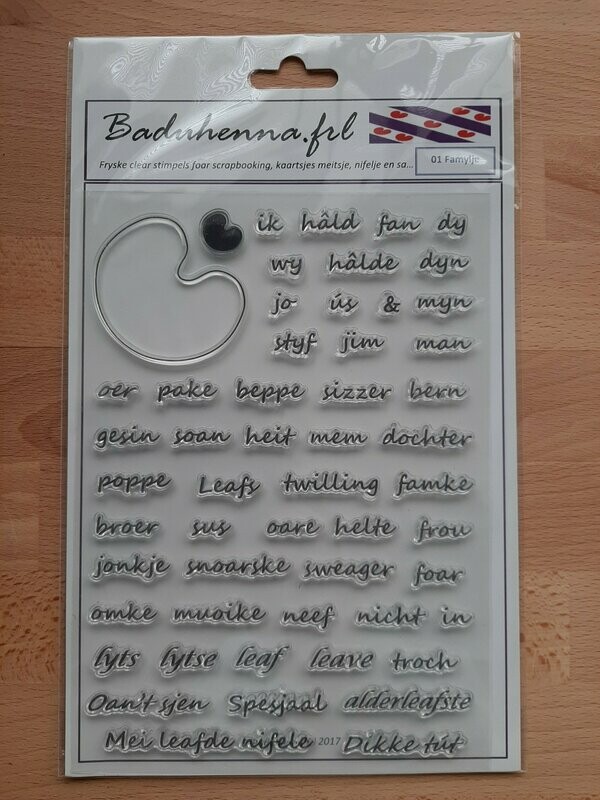 Baduhenna.frl
Fryske clear stimpels foar scrapbooking, kaartsjes meitsje, nifelje en sa...
01 Famylje
ik hâld fan dy
wy hâlde dyn
jo ús & myn
styf jim man
oer pake beppe sizzer bern
gesin soan heit mem dochter
poppe Leafs twilling famke
broer sus oare helte frou
jonkje snoarske sweager foar
omke muoike neef nicht in
lyts lytse leaf leave troch
Oan't sjen Spesjaal alderleafste
Mei leafde nifele 2017 Dikke tút